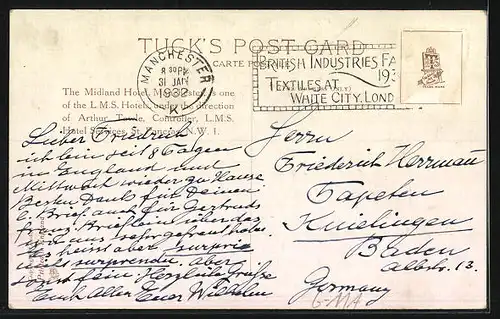 TUCK'S POST CARD
CARTE POSTALE
MANCHESTER
8 30 PM
31 JAN
1932
K
BRITISH INDUSTRIES FA
193
TEXTILES AT
WHITE CITY, LOND
TRADE MARK
The Midland Hotel, Manchester, is one
of the L.M.S. Hotels, under the direction
of Arthur Towle, Controller, L.M.S.
Hotel Services, St. Pancras, N.W. 1.
Lieber Friedrich
ich bin seit 8 Tagen
in England und
Mittwoch wieder zu Hause
Besten Dank für Deinen
l. Brief auch für Gertruds
franz. Brieflein über das
wir uns sehr gefreut habe.
Es heisst aber surprise
nicht surprendre. Aber
sonst fein. Herzliche Grüsse
Euch Allen Euer Wilhelm
Herrn
Friederich Herrmann
Tapeten
Knielingen
Baden
Albstr. 13.
Germany